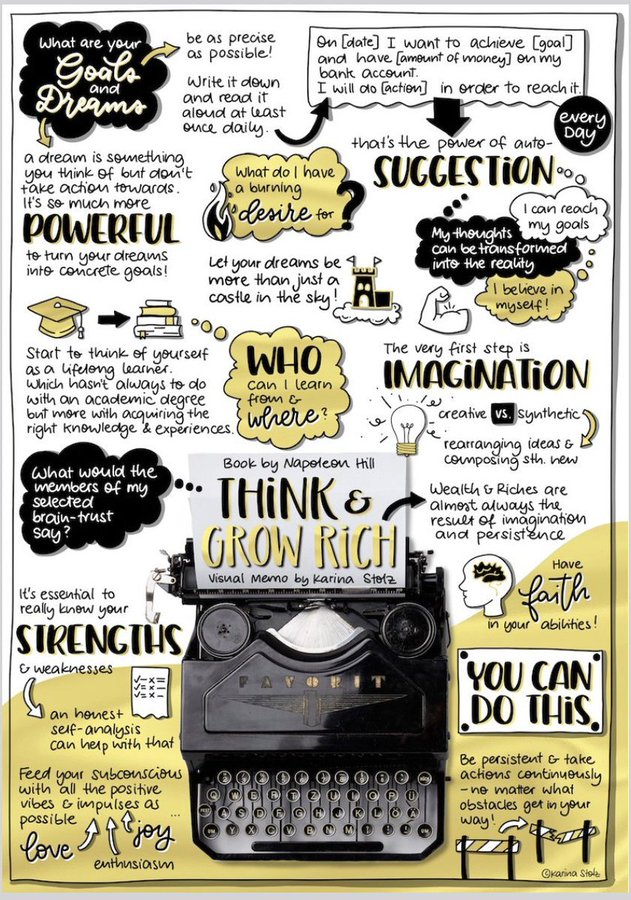 What are your
Goals
and
Dreams
be as precise
as possible!
Write it down
and read it
aloud at least
once daily.
On [date] I want to achieve [goal]
and have [amount of money] on my
bank account.
I will do [action] in order to reach it.
every
Day
that's the power of auto-
SUGGESTION
a dream is something
you think of but don't
take action towards.
It's so much more
POWERFUL
to turn your dreams
into concrete goals!
What do I have
a burning
desire for
?
I can reach
my goals
My thoughts
can be transformed
into the reality
I believe in
myself!
Let your dreams be
more than just a
castle in the sky!
Start to think of yourself
as a lifelong learner.
Which hasn't always to do
with an academic degree
but more with acquiring the
right knowledge & experiences.
WHO
can I learn
from &
where?
The very first step is
IMAGINATION
creative vs. synthetic
rearranging ideas &
composing sth. new
What would the
members of my
selected
brain-trust
say?
Book by Napoleon Hill
THINK &
GROW RICH
Visual Memo by Karina Stolz
Wealth & Riches are
almost always the
result of imagination
and persistence
Have
faith
in your abilities!
It's essential to
really know your
STRENGTHS
& weaknesses
an honest
self-analysis
can help with that
YOU CAN
DO THIS
Feed your subconscious
with all the positive
vibes & impulses as
possible
...
love
joy
enthusiasm
FAVORIT
Q W E R T Z U I O P Ü
A S D F G H J K L Ö Ä
Y X C V B N M
Be persistent & take
actions continuously
- no matter what
obstacles get in your
way!
©Karina Stolz